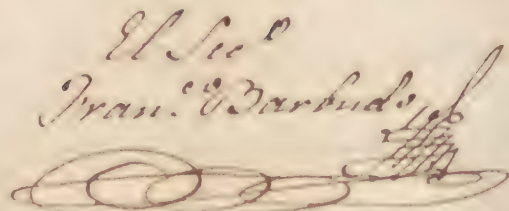 El Sec.º
Fran.co Barbudo